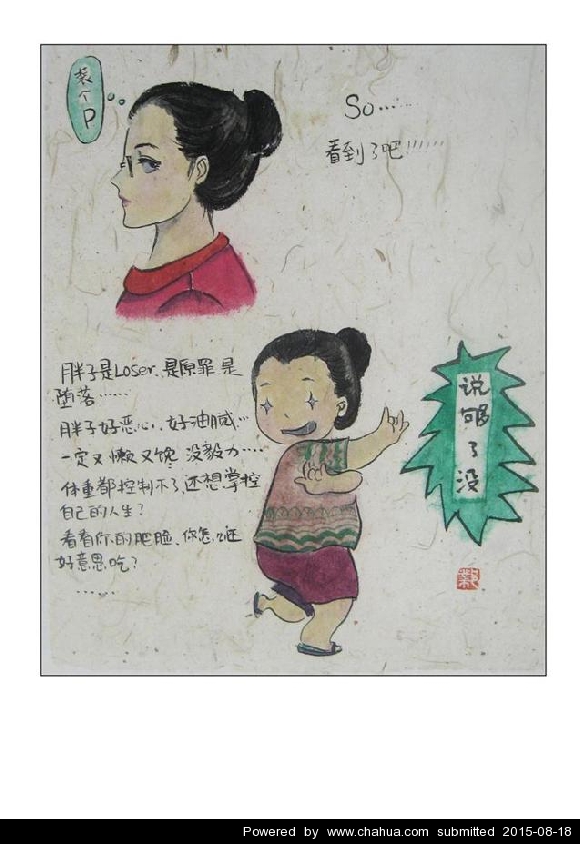 装个P
So……
看到了吧!!!……
胖子是Loser.是原罪是
堕落……
胖子好恶心,好油腻…
一定又懒又馋 没毅力….
体重都控制不了,还想掌控
自己的人生?
看看你的肥脸、你怎么还
好意思吃?
……
说够了没
Powered by www.chahua.com submitted 2015-08-18